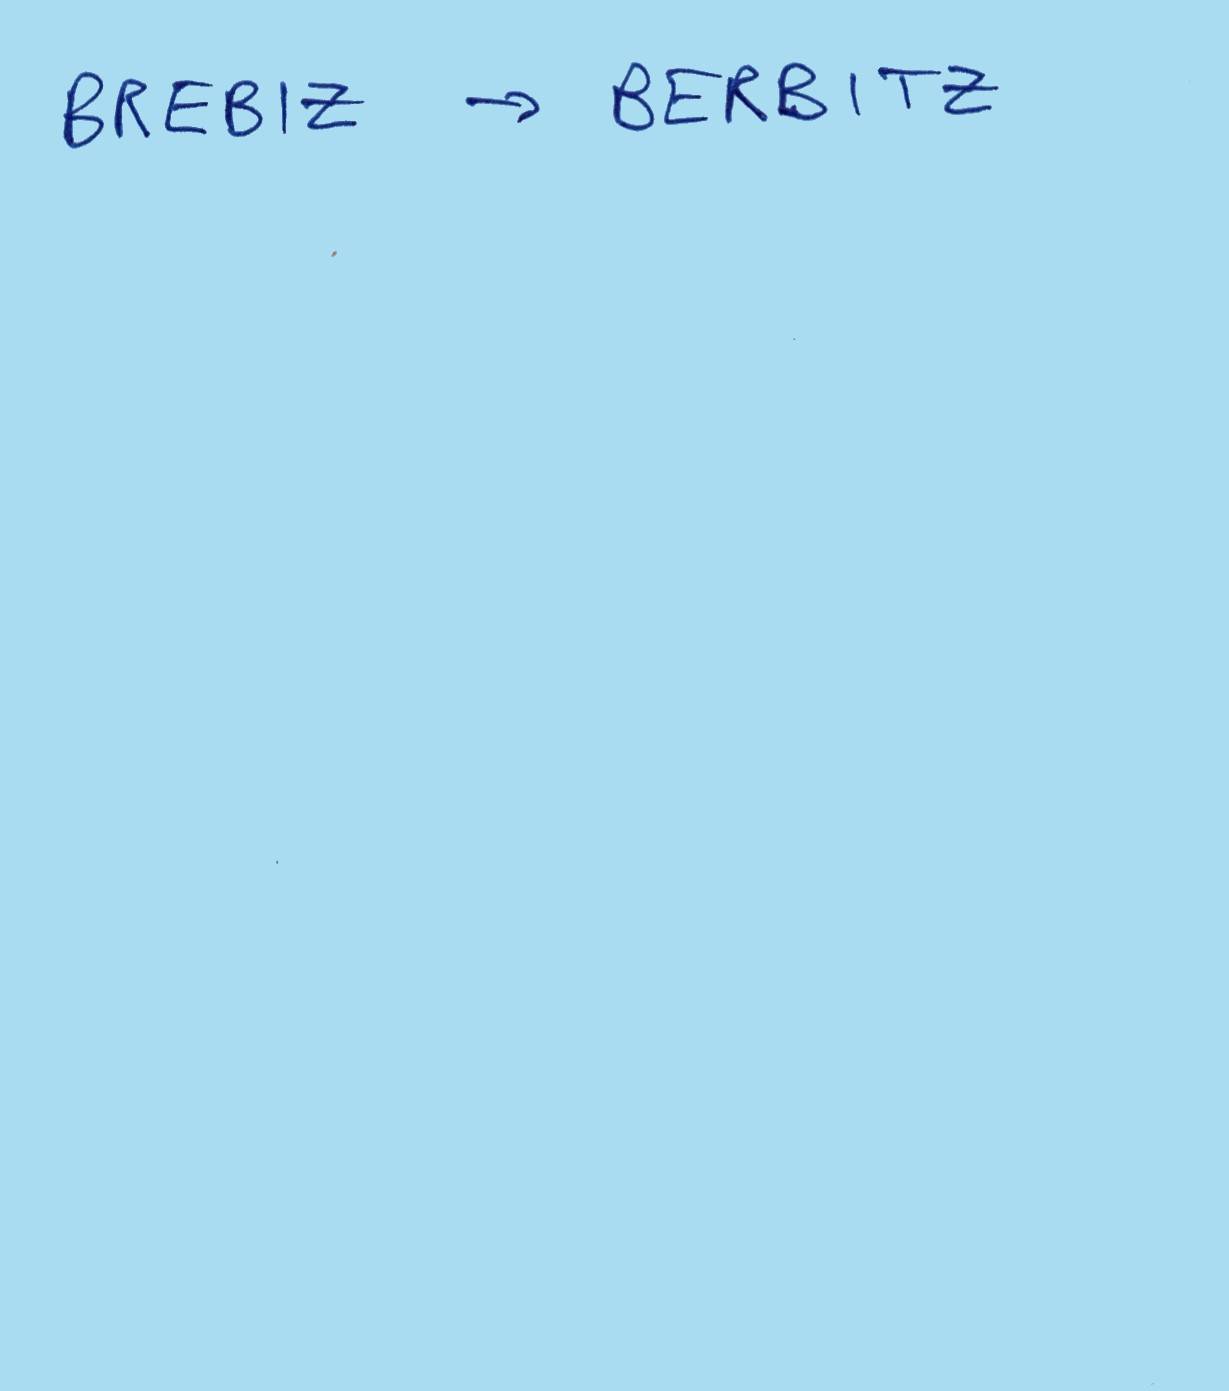 BREBIZ → BERBITZ